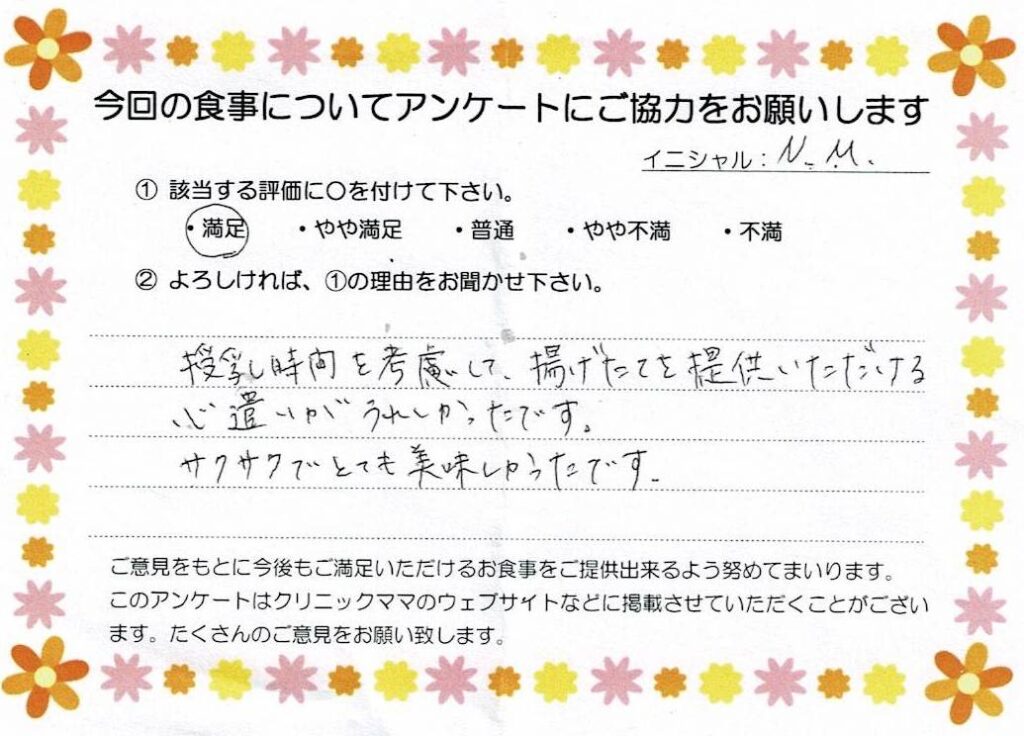 今回の食事についてアンケートにご協力をお願いします
イニシャル：N.M.
① 該当する評価に〇を付けて下さい。
・満足 ・やや満足 ・普通 ・やや不満 ・不満
② よろしければ、①の理由をお聞かせ下さい。
授乳し時間を考慮して、揚げたてを提供いただける
心遣いがうれしかったです。
サクサクでとても美味しかったです。
ご意見をもとに今後もご満足いただけるお食事をご提供出来るよう努めてまいります。
このアンケートはクリニックママのウェブサイトなどに掲載させていただくことがござい
ます。たくさんのご意見をお願い致します。